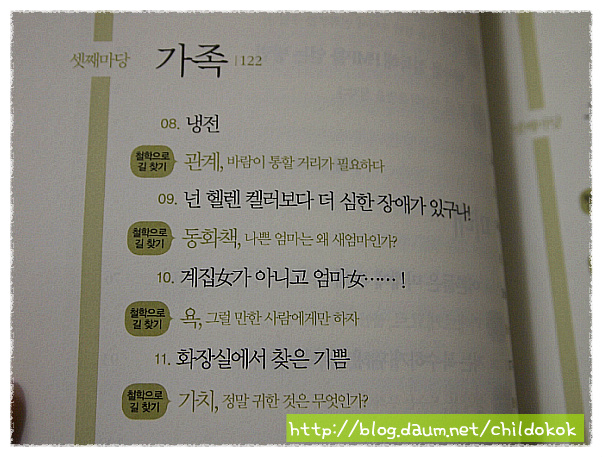 셋째마당 가족 | 122
08. 냉전
철학으로
길 찾기
관계, 바람이 통할 거리가 필요하다
09. 넌 헬렌 켈러보다 더 심한 장애가 있구나!
철학으로
길 찾기
동화책, 나쁜 엄마는 왜 새엄마인가?
10. 계집女가 아니고 엄마女……!
철학으로
길 찾기
욕, 그럴 만한 사람에게만 하자
11. 화장실에서 찾은 기쁨
철학으로
길 찾기
가치, 정말 귀한 것은 무엇인가?
http://blog.daum.net/childokok